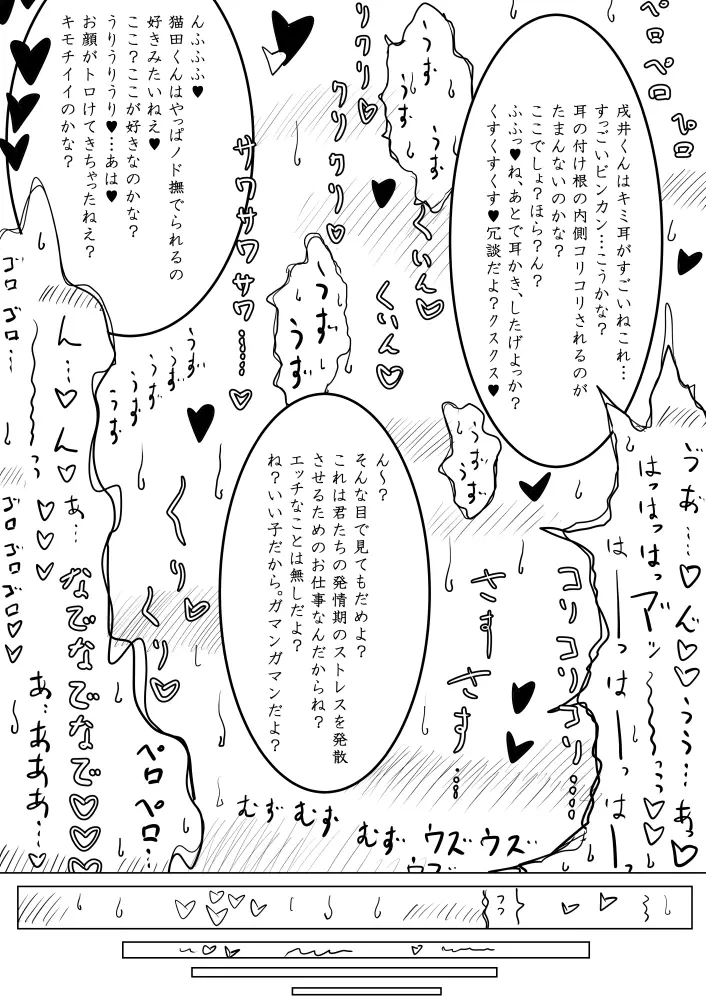 戌井くんはキミ耳がすごいねこれ…
すっごいビンカン…こうかな？
耳の付け根の内側コリコリされるのが
たまんないのかな？
ここでしょ？ほら？ん？
ふふっ♥ね、あとで耳かき、したげよっか？
くすくすくす♥冗談だよ？クスクス♥
んふふふ♥
猫田くんはやっぱノド撫でられるの
好きみたいねえ♥
ここ？ここが好きなのかな？
うりうりうり♥…あは♥
お顔がトロけてきちゃったねえ？
キモチイイのかな？
ん～？
そんな目で見てもだめよ？
これは君たちの発情期のストレスを発散
させるためのお仕事なんだからね？
エッチなことは無しだよ？
ね？いい子だから。ガマンガマンだよ？
ペロペロ
ペロ
うず
うず
うず
リクリ♡
クリクリ♡
くいん♡
くいん♡
サワサワサワ…♡
うず
うず
うず
うず
うず
うず
うず
うず
うず
ゴロゴロ…
ん…♡ん♡
あ…
くりくり♡
ゴロゴロゴロ♡♡
なでなでなで♡♡♡
あ…あああ…♡
ペロペロ…
さすさす…
コリコリコリ…
はっはっはっ
はーっはーっはー
むず
むず
むず
ウズウズ